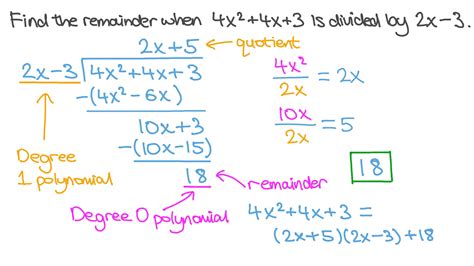 Find the remainder when 4x²+4x+3 is divided by 2x-3.
2x+5 ← quotient
2x-3 | 4x²+4x+3
-(4x²-6x)
10x+3
-(10x-15)
18
remainder
Degree
1 polynomial
Degree 0 polynomial
4x²/2x = 2x
10x/2x = 5
18
4x²+4x+3 =
(2x+5)(2x-3)+18